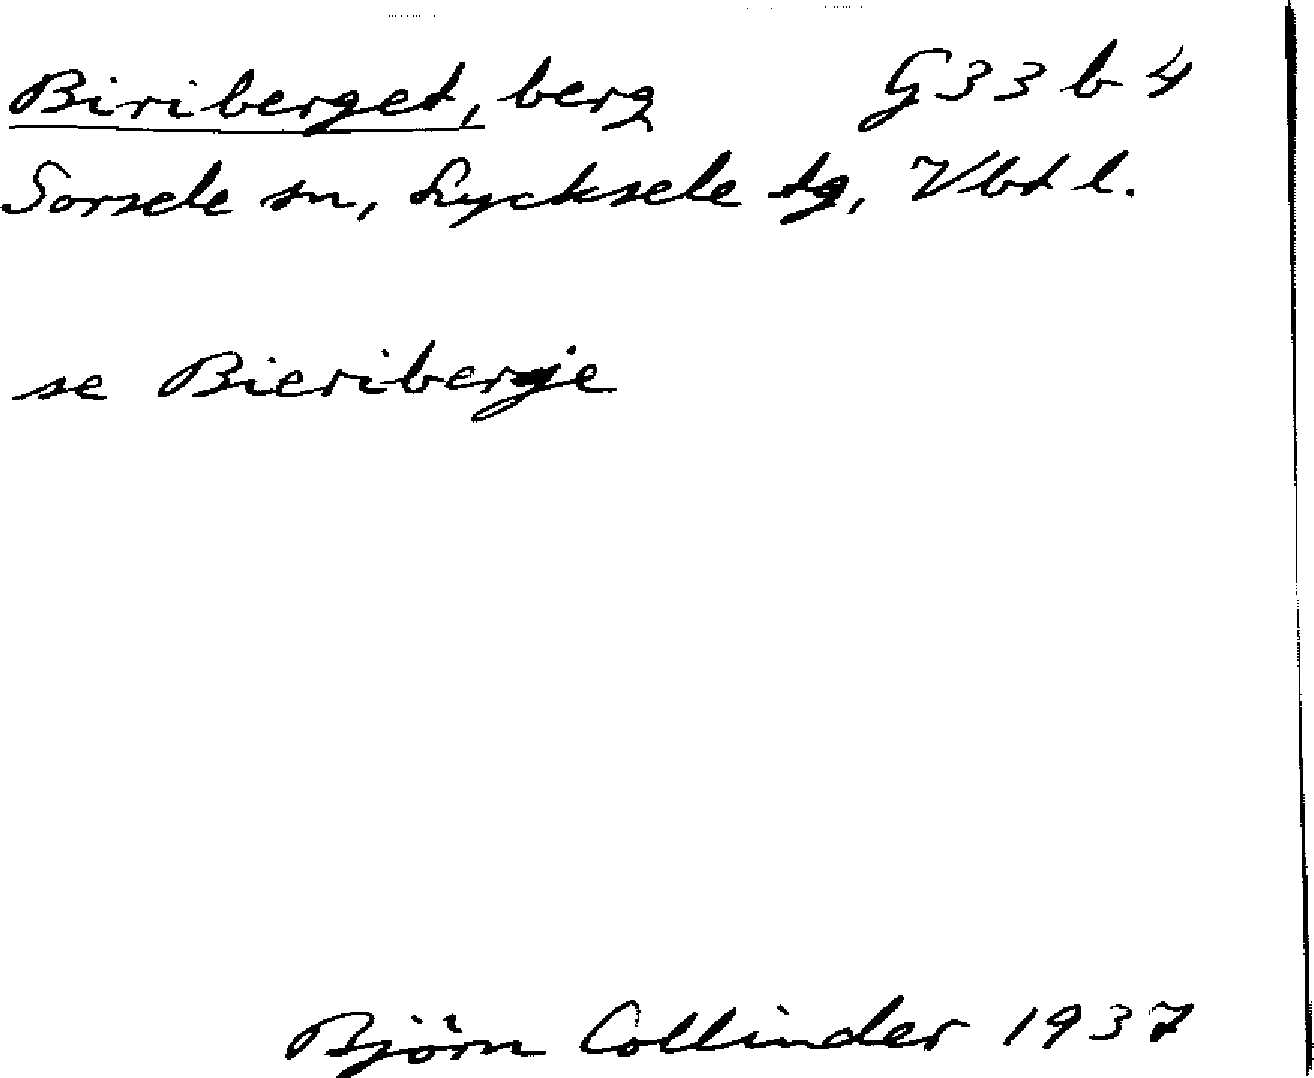 Biriberget, berg G33 b 4
Sorsele sn, Lycksele tg, Vbt l.
se Bieriberje
Björn Collinder 1937